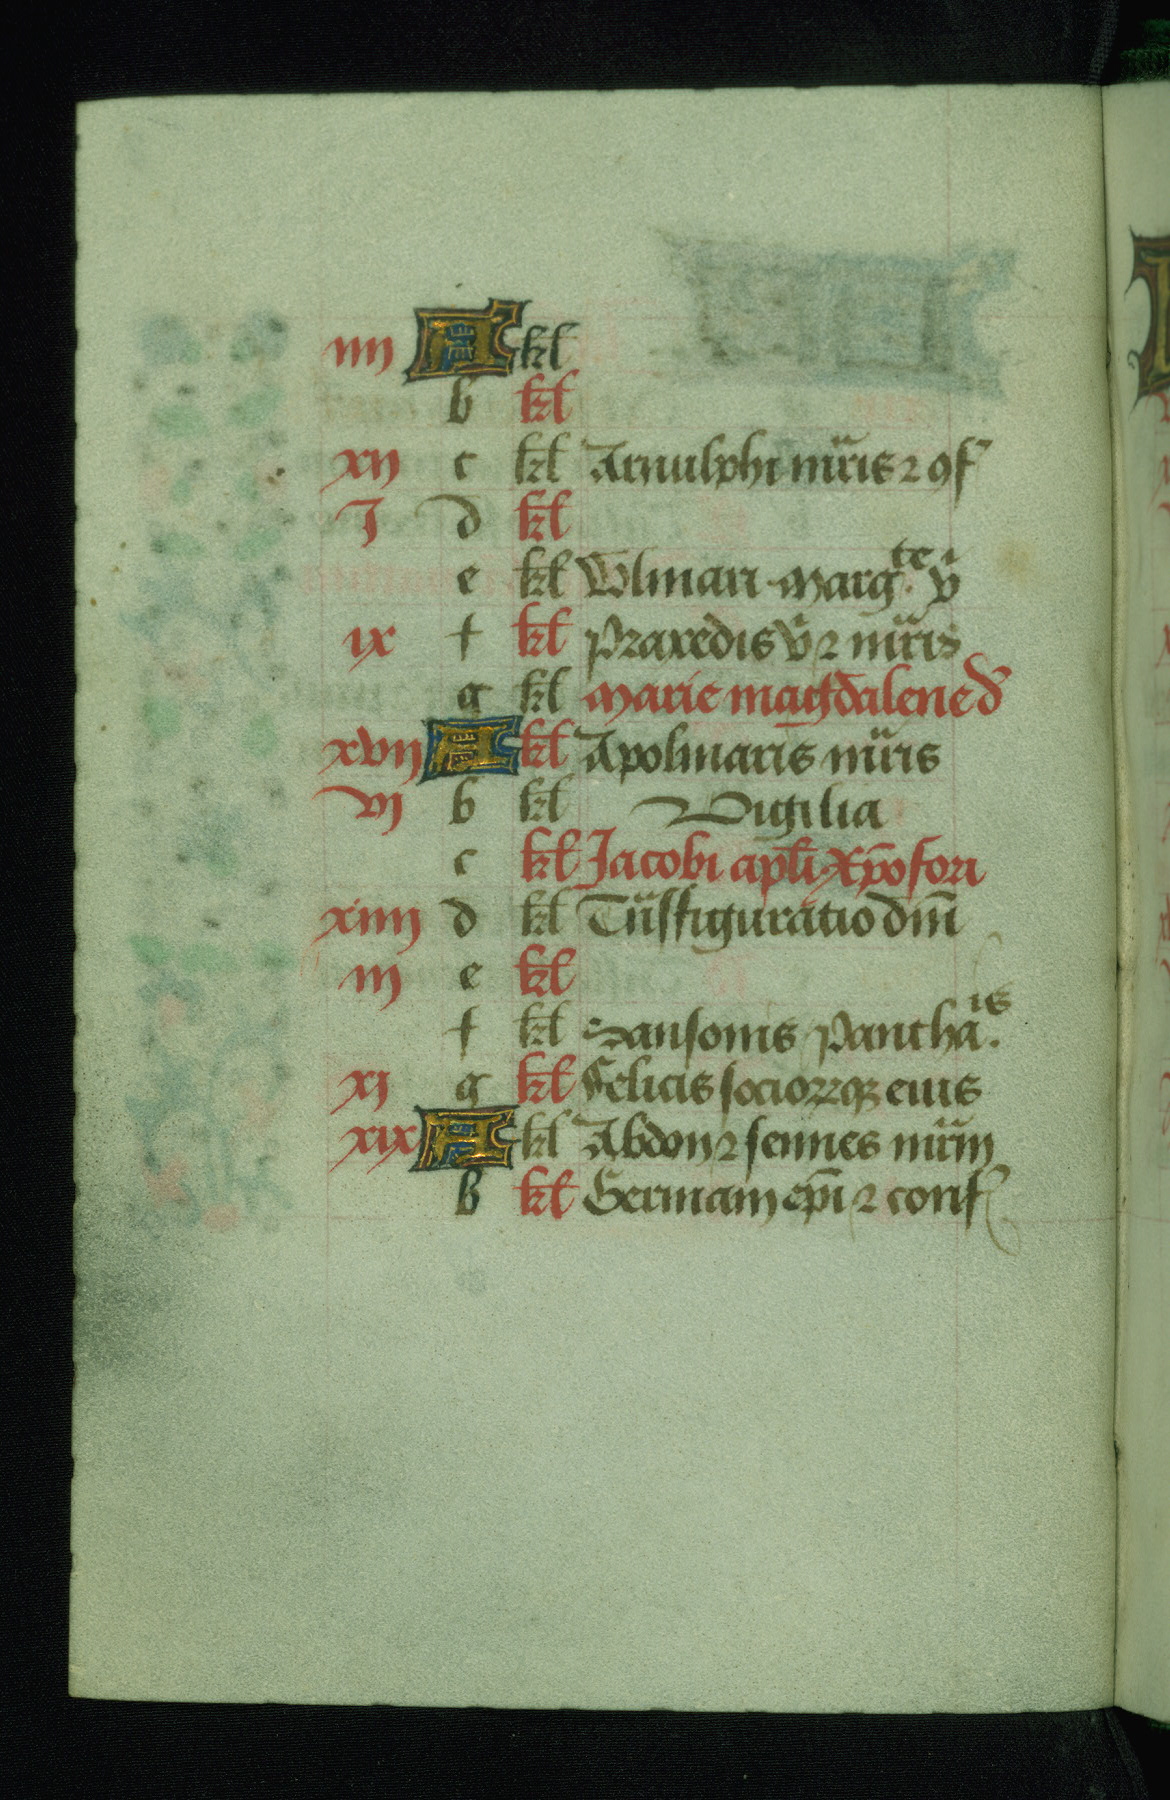 iiii A kl
b kl
xii c kl Arnulphi mr̃is ⁊ ꝯf
J d kl
e kl Wlmari. Marg.te v̄
ix f kl Praxedis v̄ ⁊ mr̃is
g kl Marie magdalene d
xvii A kl Apolinaris mr̃is
vi b kl Vigilia
c kl Jacobi apl̃i. Xp̄ofori
xiiii d kl Tn̄sfiguratio dn̄i
iii e kl
f kl Sansonis Pantha.is
xi g kl Felicis socioꝝqꝫ eius
xix A kl Abdon ⁊ sennes mr̃m
b kl Germani ep̄i ⁊ conf